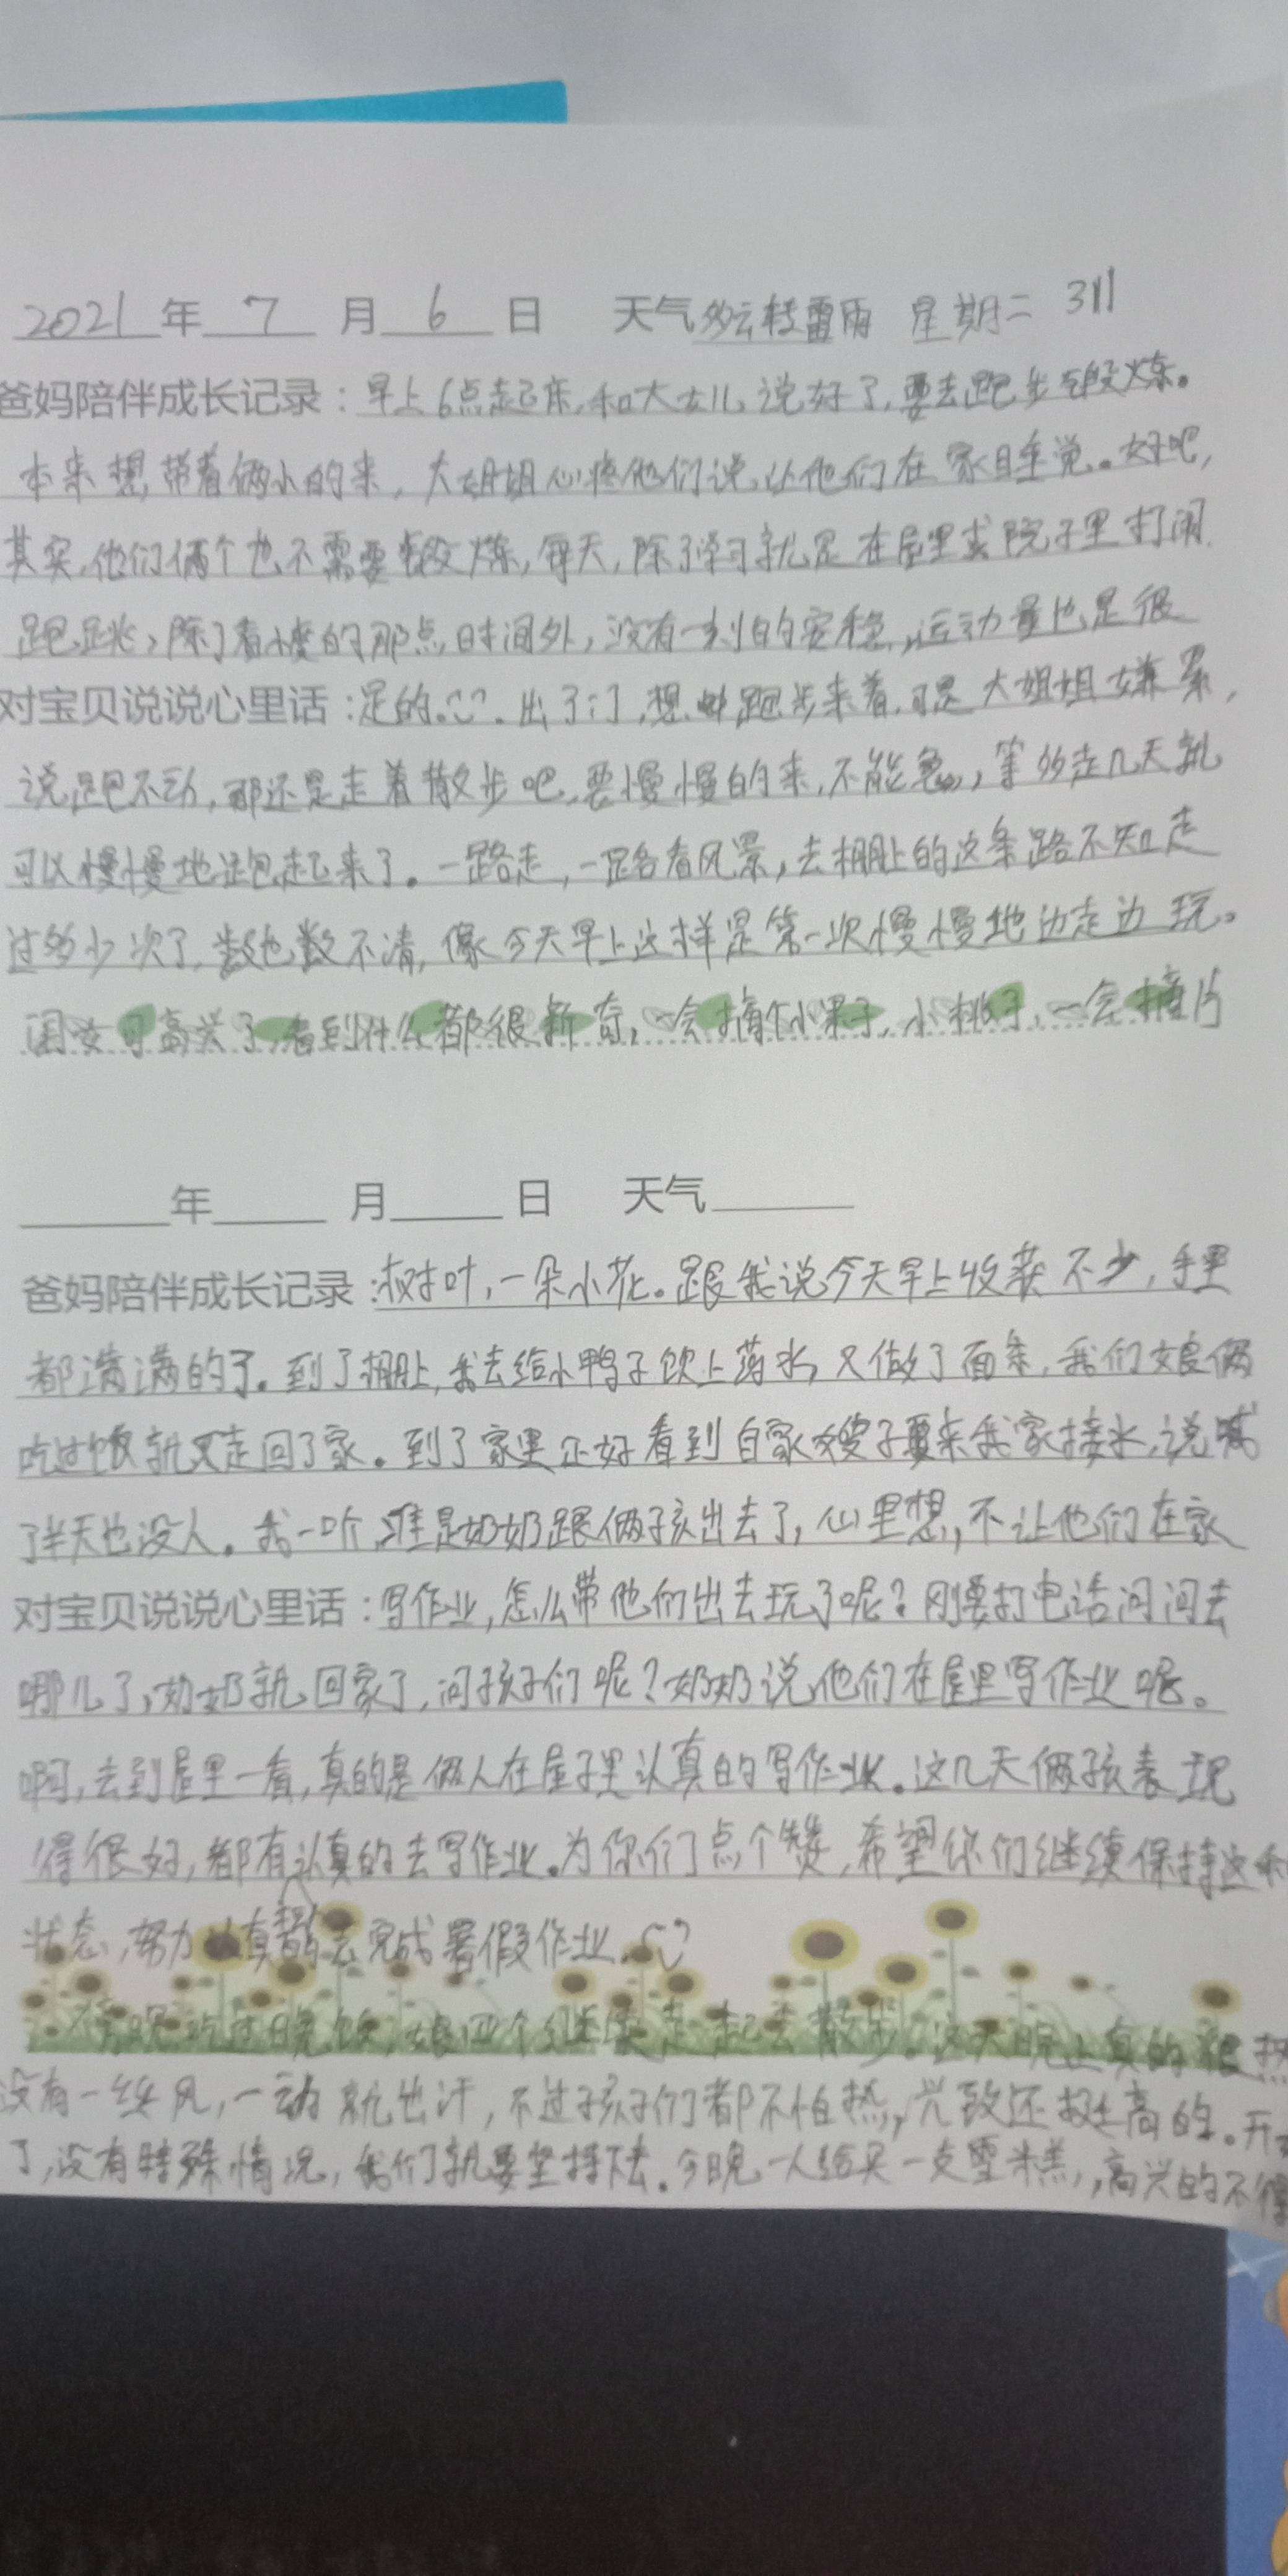 2021年7月6日 天气多云转雷雨 星期二 311
爸妈陪伴成长记录：早上6点起床,和大女儿说好了,要去跑步锻炼。
本来想带着俩小的来,大姐姐心疼他们说,让他们在家睡觉。好吧,
其实,他们俩个也不需要锻炼,每天,除了学习就是在屋里或院子里打闹
跑跳,除了看小度的那点时间外,没有一刻的安稳,运动量也是很
对宝贝说说心里话：足的。出了门,想跑步来着,可是大姐姐嫌累,
说跑不动,那还是走着散步吧,要慢慢的来,不能急,等多走几天就
可以慢慢地跑起来了。一路走,一路看风景,去棚上的这条路不知走
过多少次了,数也数不清,像今天早上这样是第一次慢慢地边走边玩。
闺女可高兴了,看到什么都很新奇,一会摘个小果子,小桃子,一会摘片
年 月 日 天气
爸妈陪伴成长记录：树叶,一朵小花。跟我说今天早上收获不少,手里
都满满的了。到了棚上,我去给小鸭子饮上药水,又做了面条,我们娘俩
吃过饭就又走回了家。到了家里正好看到自家嫂子要来我家接水,说喊
了半天也没人。我一听,准是奶奶跟俩孩出去了,心里想,不让他们在家
对宝贝说说心里话：写作业,怎么带他们出去玩了呢?刚要打电话问问去
哪儿了,奶奶就回家了,问孩子们呢?奶奶说他们在屋里写作业呢。
啊,去到屋里一看,真的是俩人在屋子里认真的写作业。这几天俩孩表现
得很好,都有认真的去写作业。为你们点个赞,希望你们继续保持这种
状态,努力认真的去完成暑假作业。
傍晚吃过晚饭,娘四个继续走起去散步。这天晚上真的很热
没有一丝风,一动就出汗,不过孩子们都不怕热,兴致还挺高的。开
了,没有特殊情况,我们就要坚持下去。今晚一人给买一支雪糕,高兴的不得